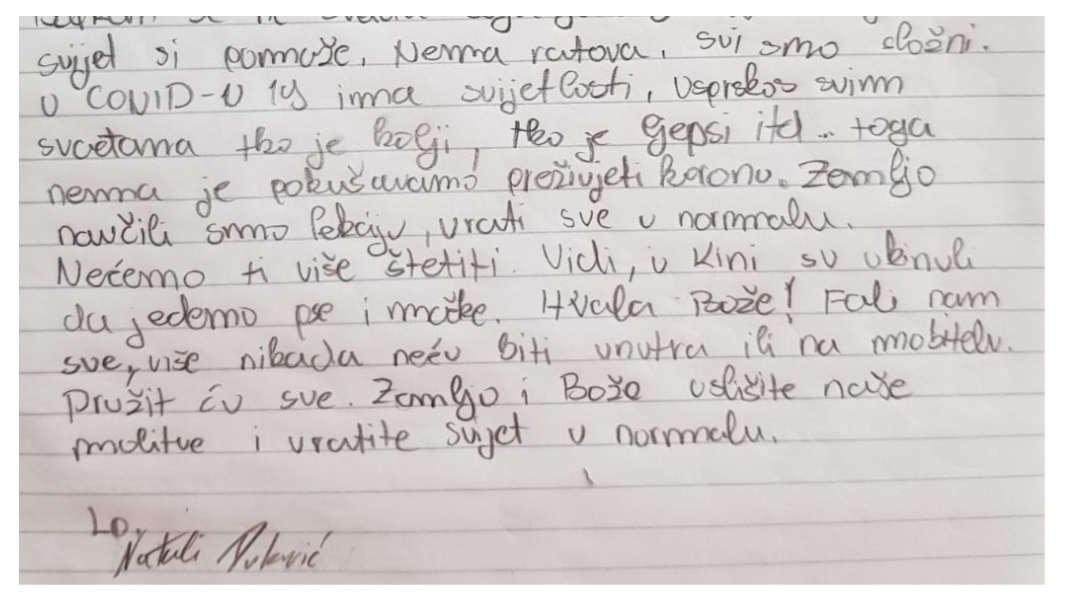 svijet si pomaže. Nema ratova, svi smo složni.
U COVID-U 19 ima svijetlosti, usprkos svim
svađama tko je bolji, tko je ljepši itd... toga
nema je pokušavamo preživjeti koronu. Zemljo
naučili smo lekciju, vrati sve u normalu.
Nećemo ti više štetiti. Vidi, u Kini su ukinuli
da jedemo pse i mačke. Hvala Bože! Fali nam
sve, više nikada neću biti unutra ili na mobitelu.
Pružit ću sve. Zemljo i Bože uslišite naše
molitve i vratite svijet u normalu.
Natali